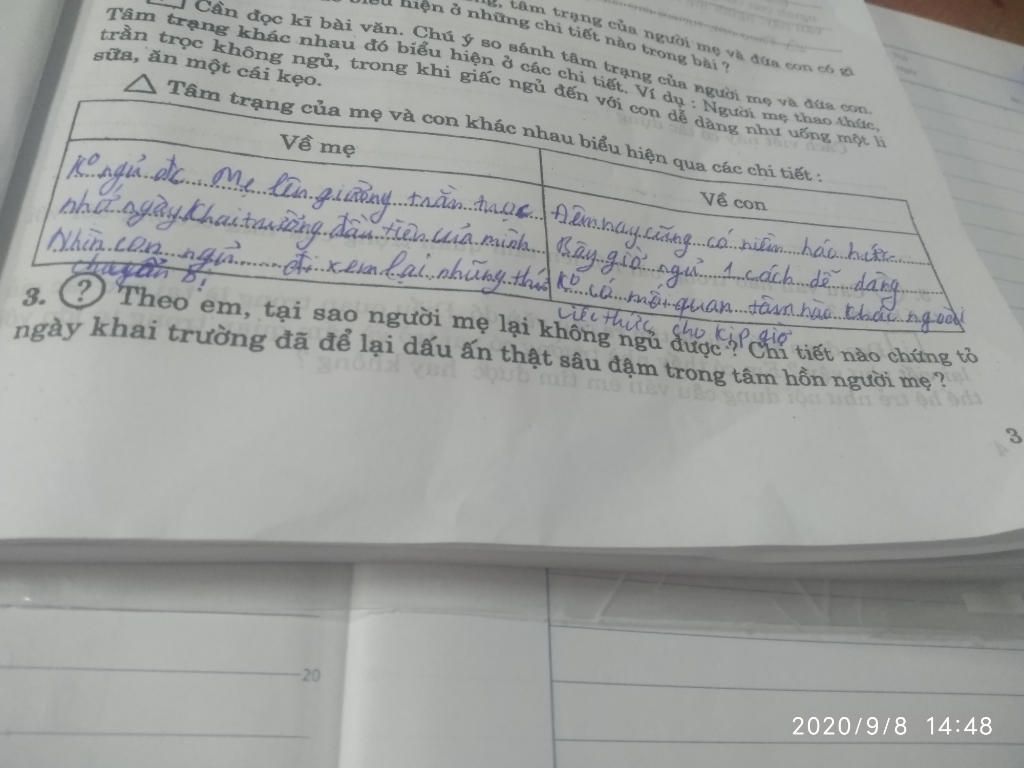 tâm trạng của người mẹ và đứa con có gì
hiện ở những chi tiết nào trong bài ?
Cần đọc kĩ bài văn. Chú ý so sánh tâm trạng của người mẹ và đứa con.
Tâm trạng khác nhau đó biểu hiện ở các chi tiết. Ví dụ : Người mẹ thao thức,
trằn trọc không ngủ, trong khi giấc ngủ đến với con dễ dàng như uống một li
sữa, ăn một cái kẹo.
Tâm trạng của mẹ và con khác nhau biểu hiện qua các chi tiết :
Về mẹ
K° ngủ đc. Mẹ lên giường trằn trọc
nhớ ngày khai trường đầu tiên của mình
Nhìn con ngủ đi xem lại những thứ
chuẩn bị
Về con
Đêm nay cũng có niềm háo hức
Bây giờ ngủ 1 cách dễ dàng
K° có mối quan tâm nào khác ngoài
việc thức cho kịp giờ
3. ? Theo em, tại sao người mẹ lại không ngủ được ? Chi tiết nào chứng tỏ
ngày khai trường đã để lại dấu ấn thật sâu đậm trong tâm hồn người mẹ ?
3
20
2020/9/8 14:48